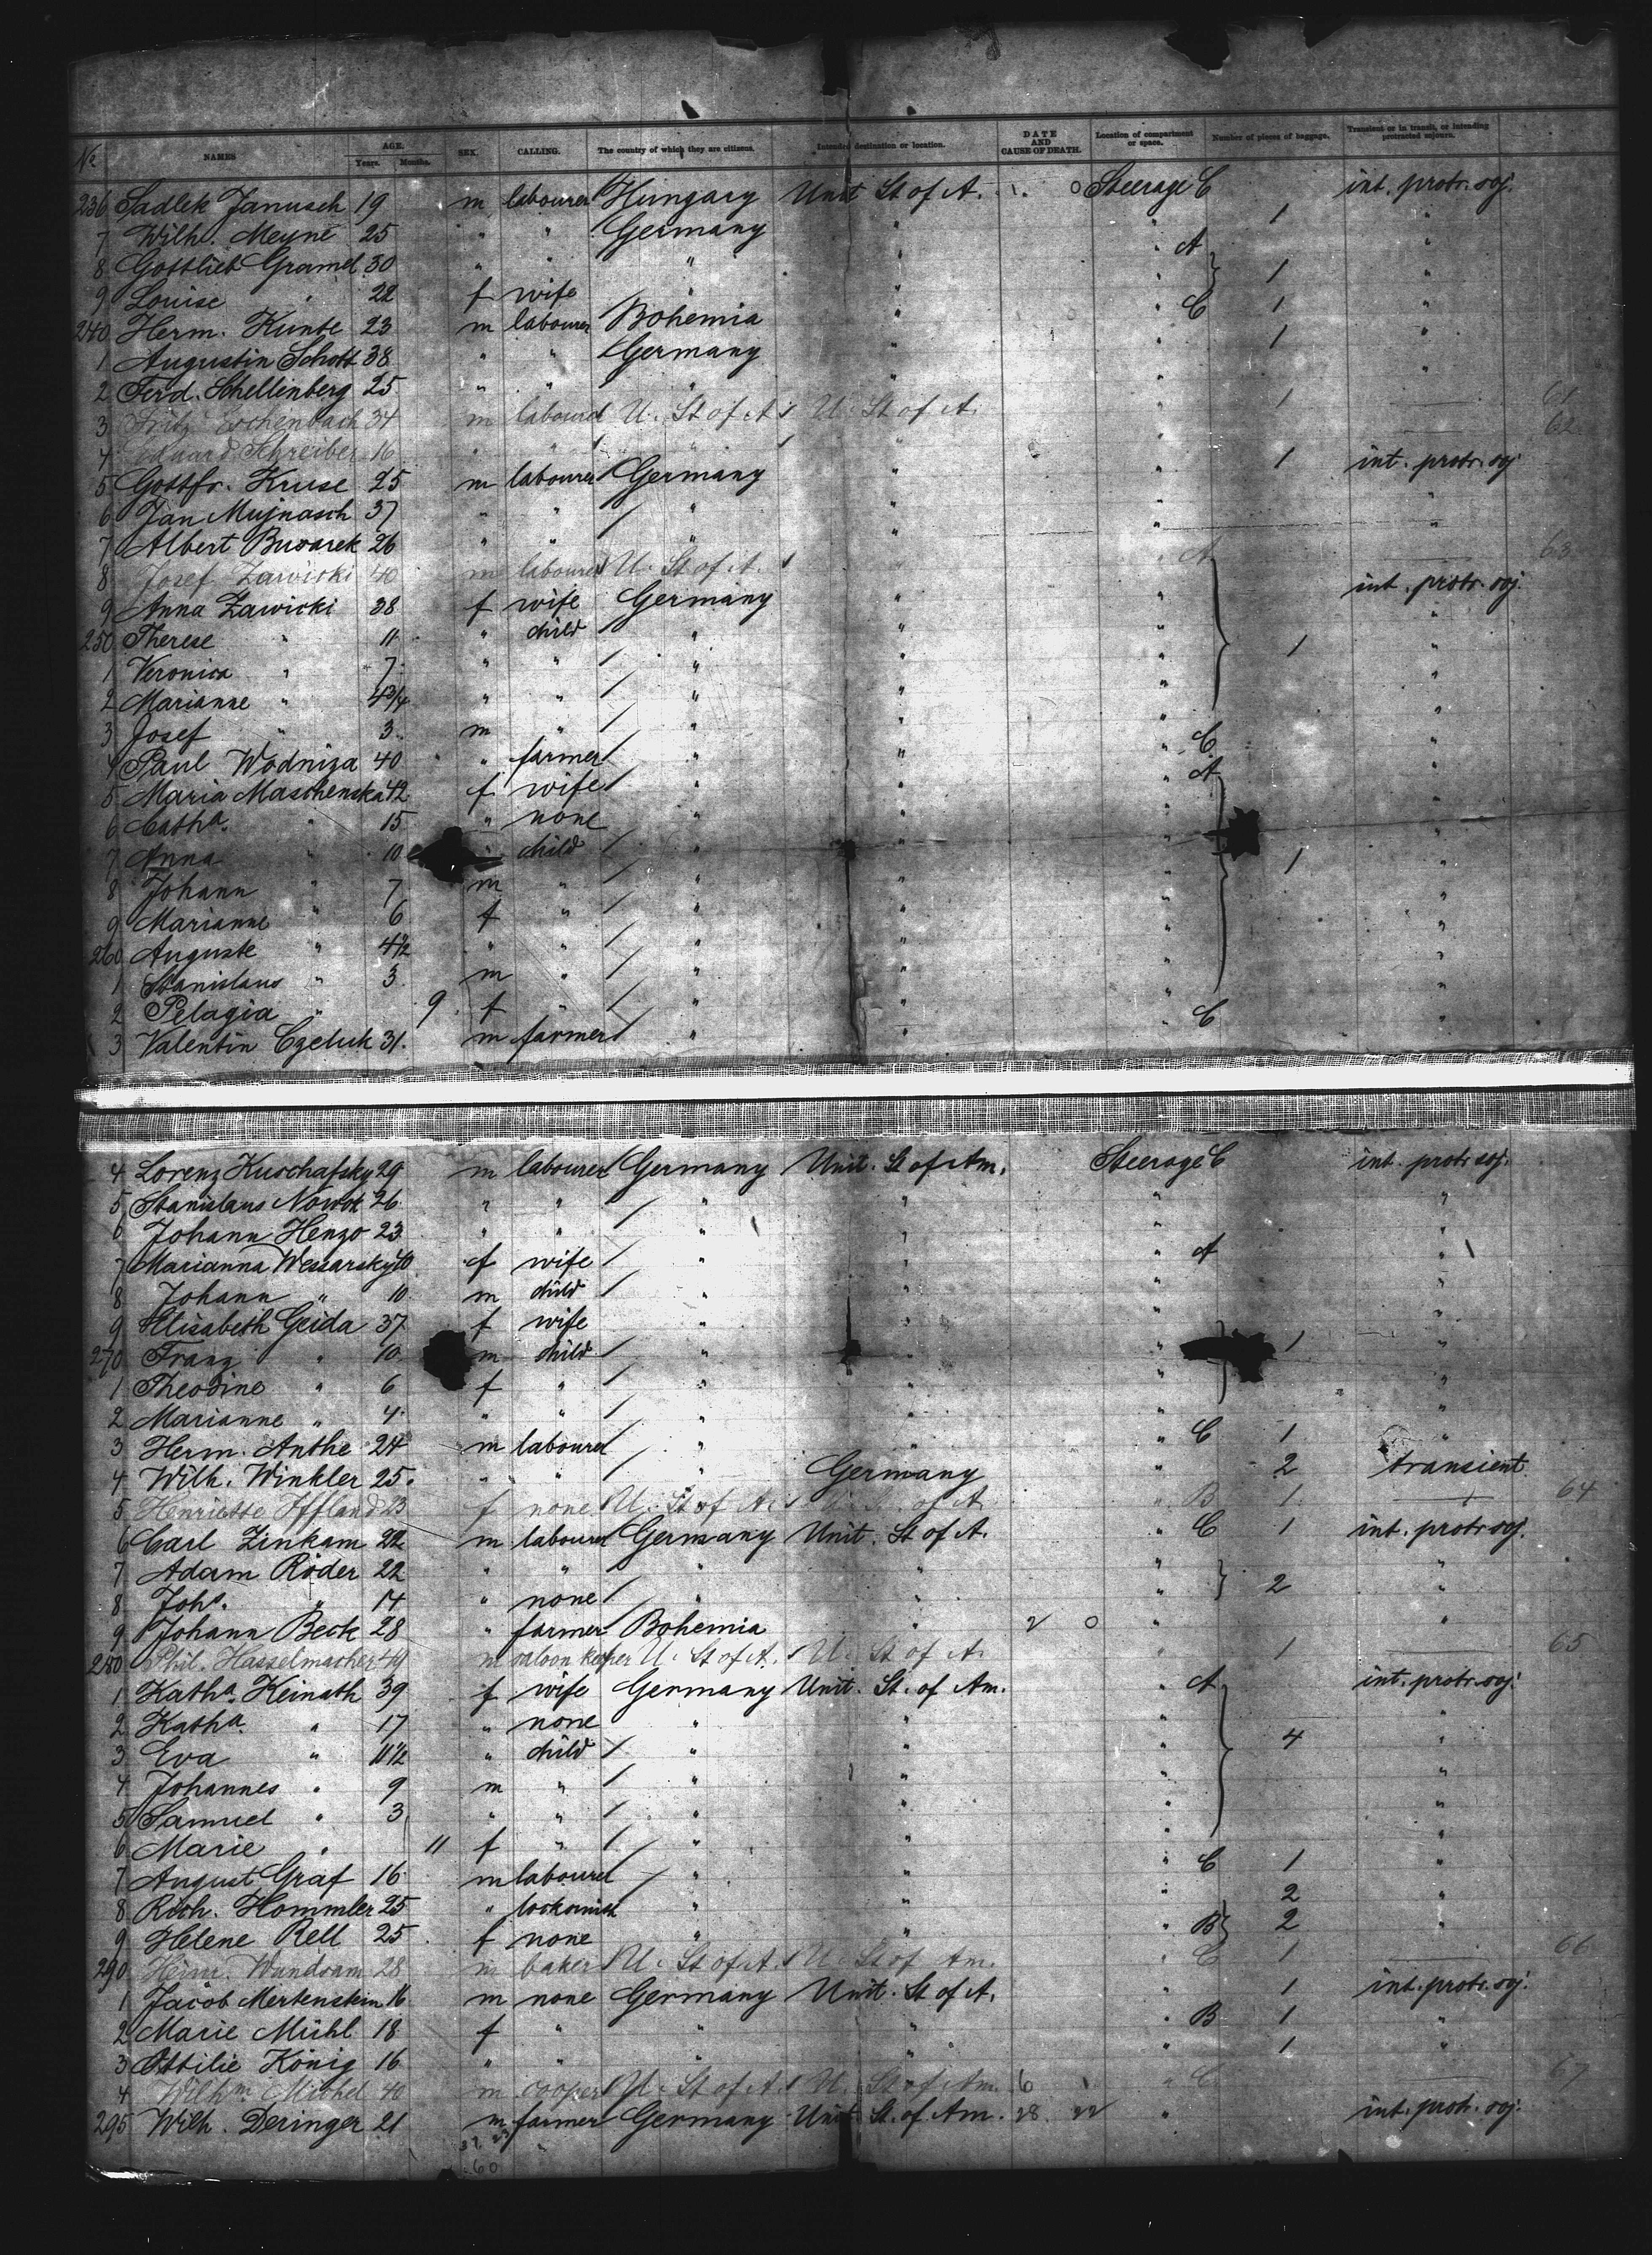 No NAMES AGE. Years. Months. SEX. CALLING. The country of which they are citizens. Intended destination or location. DATE AND CAUSE OF DEATH. Location of compartment or space. Number of pieces of baggage. Transient or in transit, or intending protracted sojourn.
236 Sadlek Janusch 19 m labourer Hungary Unit St of A. 0 Steerage C 1 int. protr. soj.
7 Wilh. Meyne 25 " " Germany " " "
8 Gottlieb Gramel 30 " " " " " A 1 "
9 Louise " 22 f wife " " " "
240 Herm. Kunte 23 m labourer Bohemia " " C 1 "
1 Augustin Schott 38 " " Germany " " 1 "
2 Ferd. Schellenberg 25 " " " " " "
3 Fritz Eschenbach 34 m labourer U. St of A. U. St of A. " 1 — 61
4 Eduard Schreiber 16 " " " " " 62
5 Gottfr. Kruse 25 m labourer Germany " " 1 int. protr. soj
6 Jan Mujnasch 37 " " " " " "
7 Albert Buvarek 26 " " " " " "
8 Josef Zawicki 40 m labourer U. St of A. " A — 63
9 Anna Zawicki 38 f wife Germany " " int. protr. soj.
250 Therese " 11 " child " " " "
1 Veronica " 7 " " " " " 1 "
2 Marianne " 4 3/4 " " " " " "
3 Josef " 3 m " " " " "
4 Paul Wodniza 40 " farmer " " " C "
5 Maria Maschenska 42 f wife " " " A "
6 Catha. " 15 " none " " " "
7 Anna " 10 " child " " " 1 "
8 Johann " 7 m " " " " "
9 Marianne " 6 f " " " " "
260 Auguste " 4 1/2 " " " " " "
1 Stanislaus " 3 m " " " " "
2 Pelagia " 9 f " " " " "
3 Valentin Czeluk 31 m farmer " " C "
4 Lorenz Kuschafsky 29 m labourer Germany Unit. St of Am. Steerage C int. protr soj.
5 Stanislaus Nowok 26 " " " " " "
6 Johann Henzo 23 " " " " " "
7 Marianna Wessarsky 40 f wife " " " A "
8 Johann " 10 m child " " "
9 Elisabeth Geida 37 f wife " " "
270 Franz " 10 m child " " " 1 "
1 Theodine " 6 f " " " " "
2 Marianne " 4 " " " " " "
3 Herm. Anthe 24 m labourer " " " C 1 "
4 Wilh. Winkler 25 " " " Germany " 2 transient
5 Henriette Iffland 23 f none U. St of A. U. St. of A. " B 1 — 64
6 Carl Zinkam 22 m labourer Germany Unit. St of A. " C 1 int. protr soj.
7 Adam Röder 22 " " " " " 2 "
8 Johs. " 14 " none " " " "
9 Johann Beck 28 " farmer Bohemia " 2 0 " "
280 Phil. Hasselmacher 44 m saloon keeper U. St of A. U. St of A. " 1 — 65
1 Katha. Keinath 39 f wife Germany Unit. St. of Am. " A int. protr. soj.
2 Katha. " 17 " none " " " "
3 Eva " 11 1/2 " child " " " 4 "
4 Johannes " 9 m " " " " "
5 Samuel " 3 " " " " " "
6 Marie " 11 f " " " " "
7 August Graf 16 m labourer " " " C 1 "
8 Rich. Hommler 25 " locksmith " " " 2 "
9 Helene Rell 25 f none " " " B 2 "
290 Heinr. Wundsam 28 m baker U. St of A. U. St of Am. " C 1 — 66
1 Jacob Mertenstein 16 m none Germany Unit. St of A. " 1 int. protr. soj.
2 Marie Mühl 18 f " " " " B 1 "
3 Ottilie König 16 " " " " " 1 "
4 Wilhm. Michel 40 m cooper U. St of A. U. St of Am. 6 " C — 67
295 Wilh. Deringer 21 m farmer Germany Unit St. of Am. 28 22 " int. protr. soj.
60